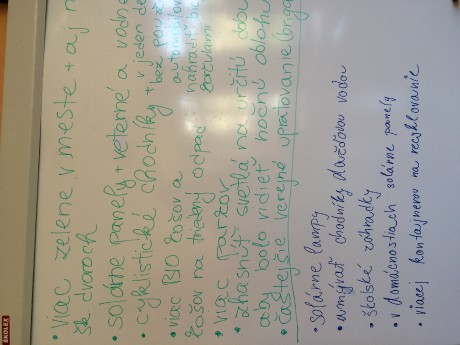 • viac zelene v meste + aj na
šk. dvoroch
• solárne panely + veterné a vodné
• cyklistické chodníky + v jeden deň
bez
• viac BIO košov a
košov na triedený odpad
nahradiť
• viac parkov
• zhasnúť svetlá na určitú dobu
aby bolo vidieť nočnú oblohu
• častejšie verejné upratovanie (brigády
• solárne lampy
• umývať chodníky dažďovou vodou
• školské záhradky
• v domácnostiach solárne panely
• viacej kontajnerov na recyklovanie
EKOLEX